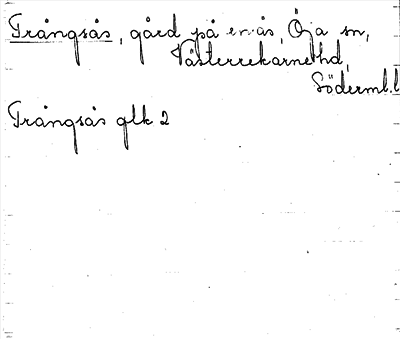 Trångsås, gård på en ås, Öja sn,
Västerrekarne hd,
Söderml.l
Trångsås glk 2